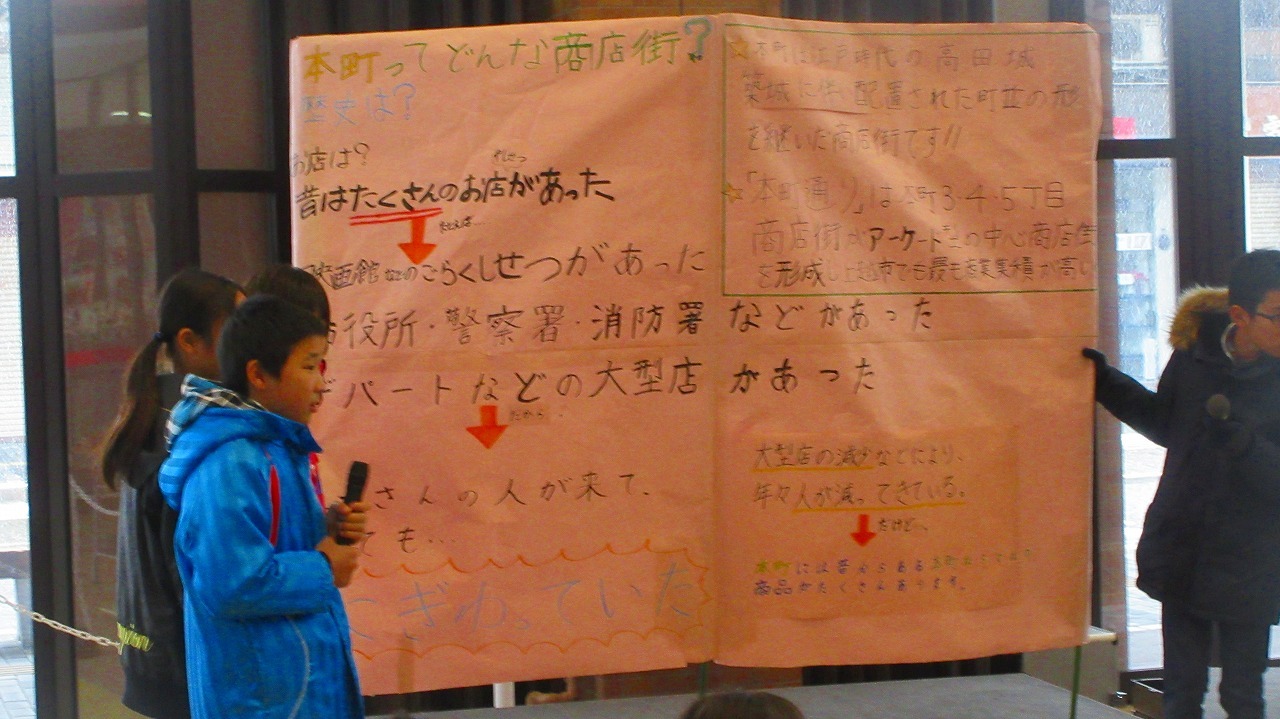 本町ってどんな商店街?
歴史は?
お店は?
しせつ
昔はたくさんのお店があった
たとえば…
映画館などのごらくしせつがあった
役所・警察署・消防署などがあった
デパートなどの大型店があった
だから…
さんの人が来て、
ても…
にぎわっていた
☆本町は江戸時代の高田城
築城に伴い配置された町並の形
を継いだ商店街です!!
☆「本町通り」は本町3・4・5丁目
商店街がアーケード型の中心商店街
を形成し上越市でも最も商業集積が高い
大型店の減少などにより、
年々人が減ってきている。
だけど、
本町には昔からある
商品がたくさんあります。